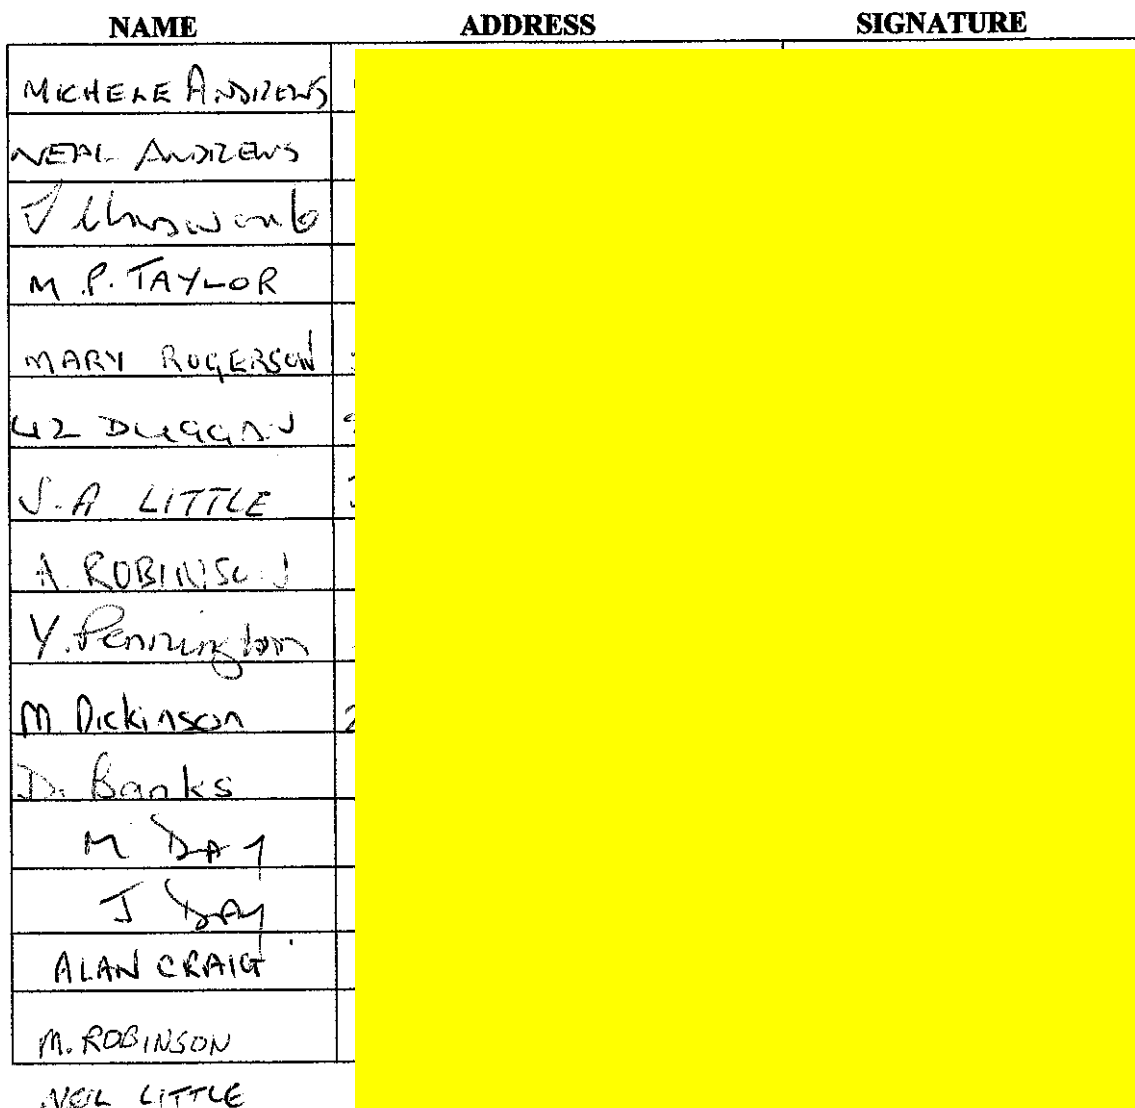 NAME ADDRESS SIGNATURE
MICHELE ANDREWS
NEAL ANDREWS
M.P. TAYLOR
MARY ROGERSON
LIZ DUGGAN
J.A LITTLE
A. ROBINSON
Y. Pennington
M Dickinson
D. Banks
M DAY
J DAY
ALAN CRAIG
M. ROBINSON
NEIL LITTLE